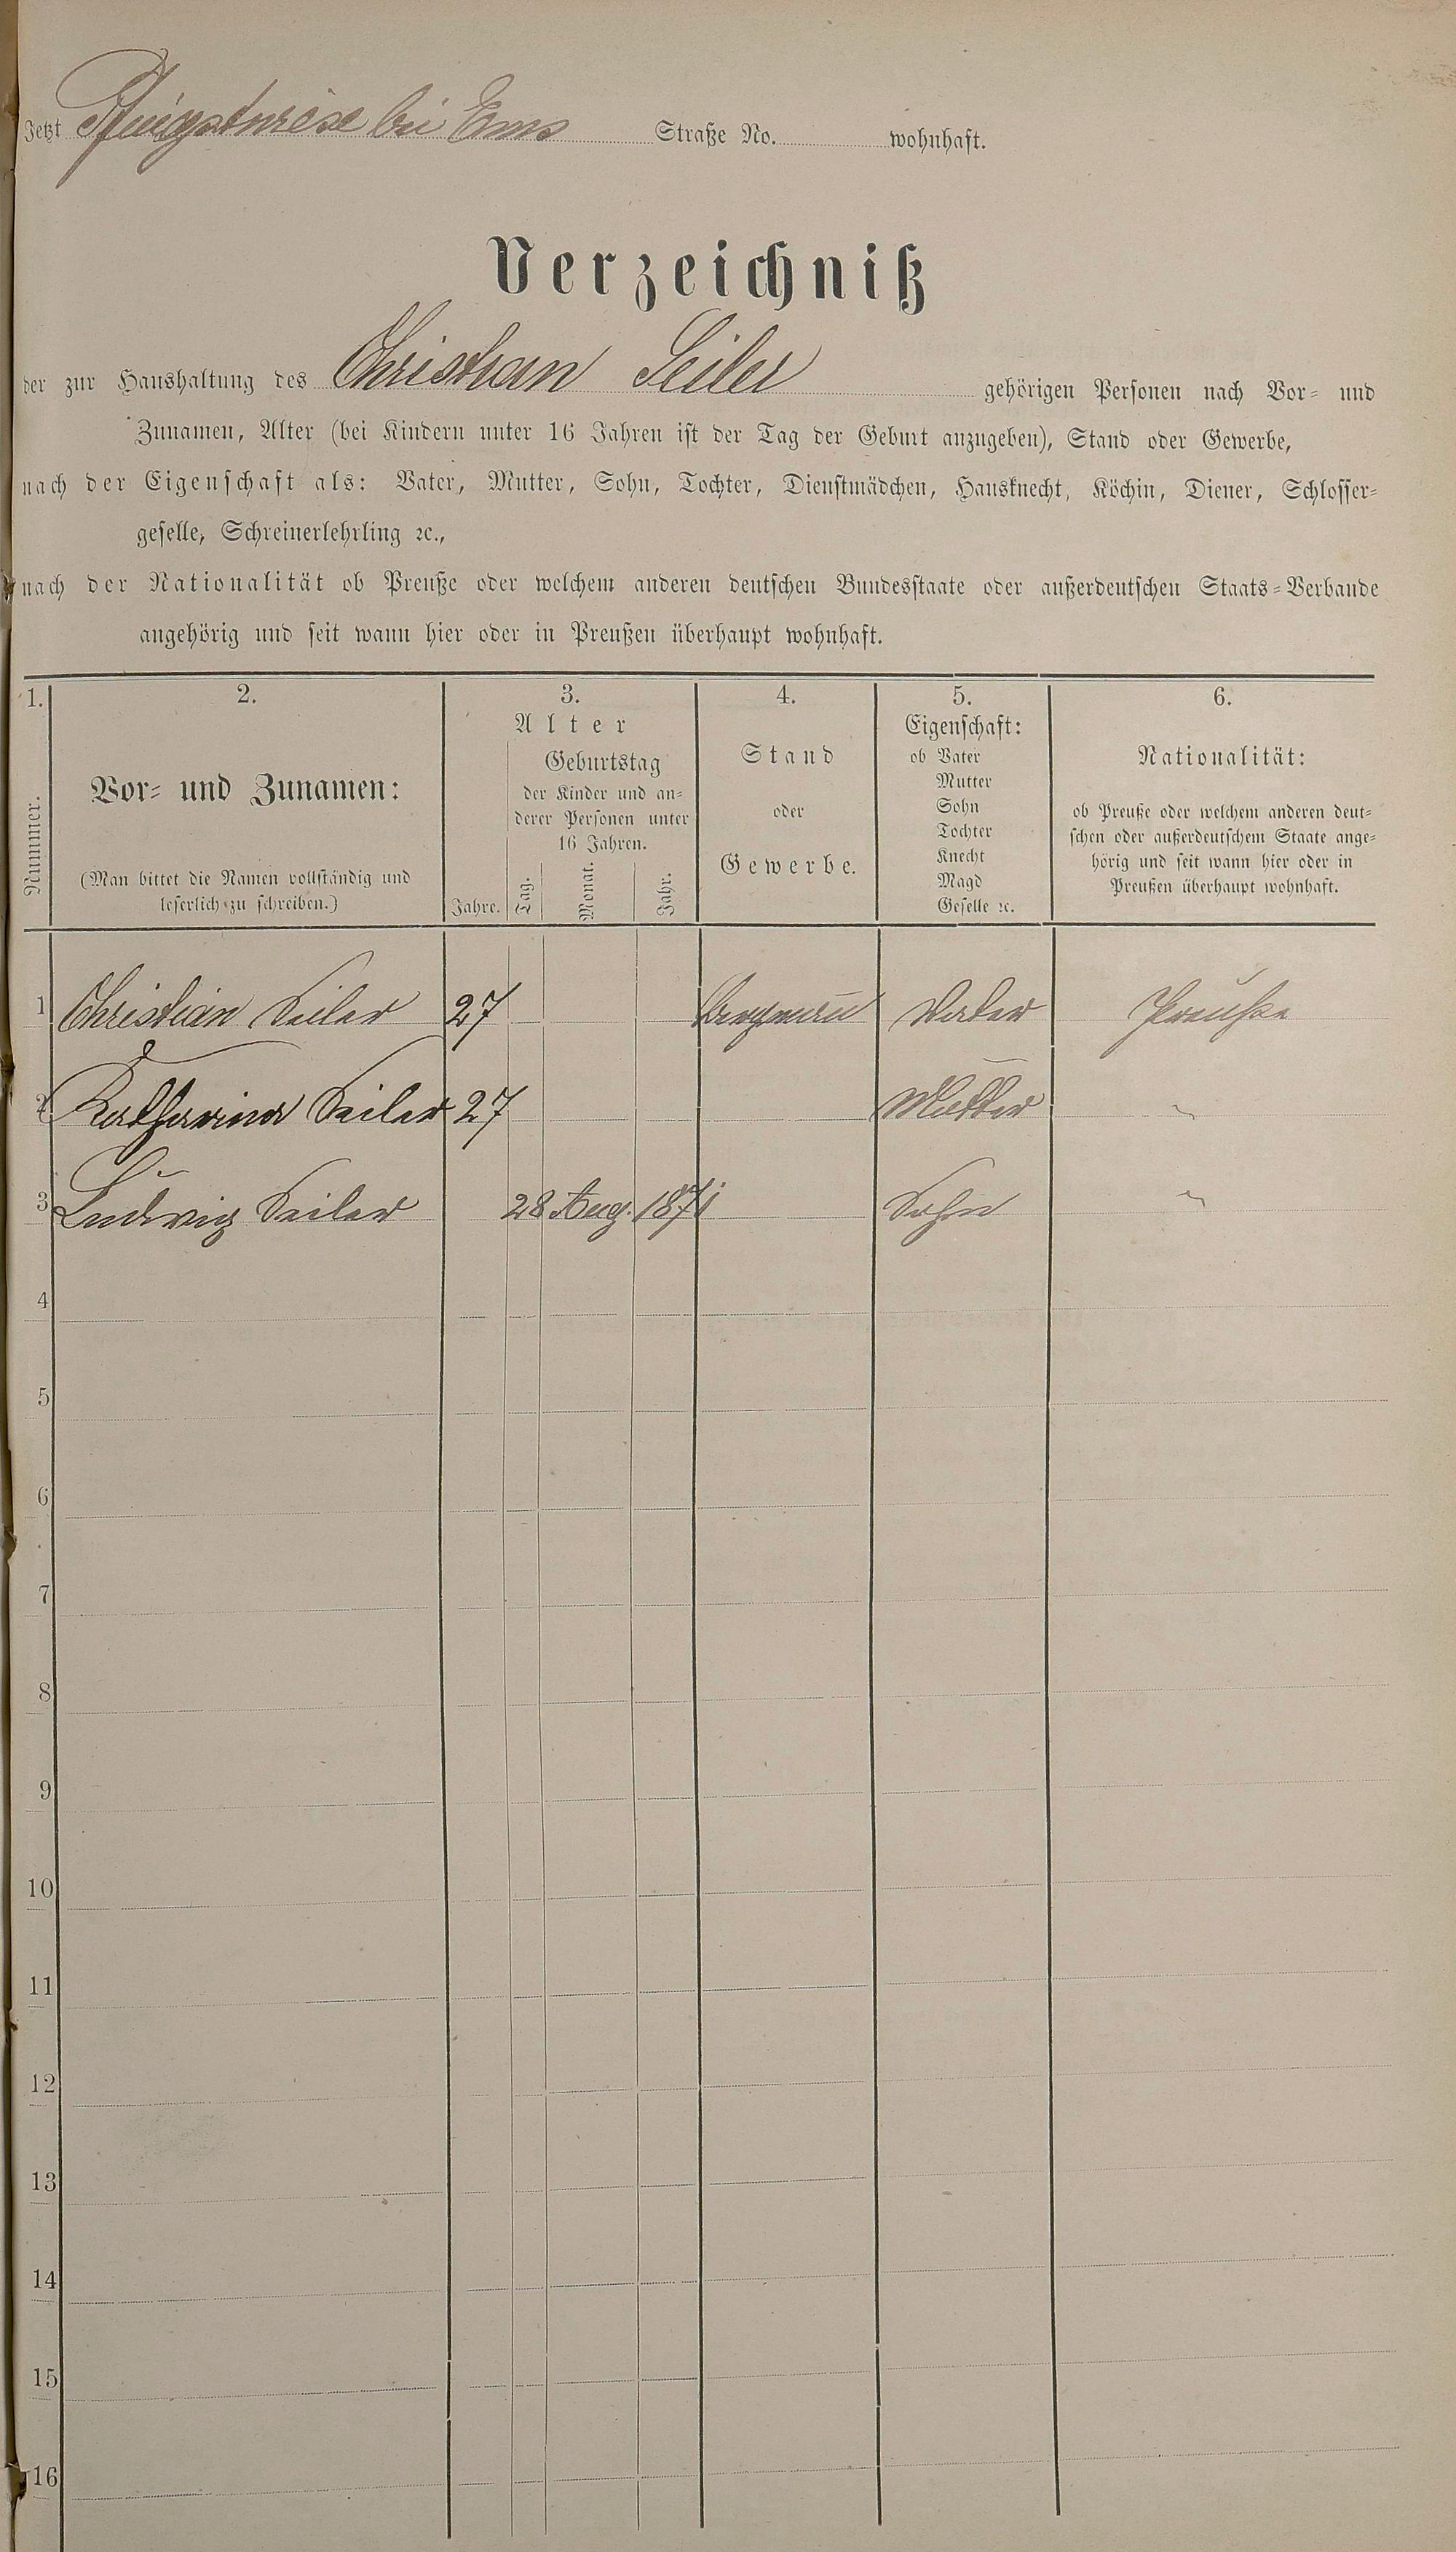 Jetzt Pfingstwiese bei Ems Straße No. wohnhaft.
Verzeichniß
der zur Haushaltung des Christian Seiler gehörigen Personen nach Vor- und
Zunamen, Alter (bei Kindern unter 16 Jahren ist der Tag der Geburt anzugeben), Stand oder Gewerbe,
nach der Eigenschaft als: Vater, Mutter, Sohn, Tochter, Dienstmädchen, Hausknecht, Köchin, Diener, Schlosser-
geselle, Schreinerlehrling ꝛc.,
nach der Nationalität ob Preuße oder welchem anderen deutschen Bundesstaate oder außerdeutschen Staats-Verbande
angehörig und seit wann hier oder in Preußen überhaupt wohnhaft.
1. 2. 3. 4. 5. 6.
Nummer.
Vor- und Zunamen:
(Man bittet die Namen vollständig und
leserlich zu schreiben.)
Alter
Jahre.
Geburtstag
der Kinder und an-
derer Personen unter
16 Jahren.
Tag. Monat. Jahr.
Stand
oder
Gewerbe.
Eigenschaft:
ob Vater
Mutter
Sohn
Tochter
Knecht
Magd
Geselle ꝛc.
Nationalität:
ob Preuße oder welchem anderen deut-
schen oder außerdeutschem Staate ange-
hörig und seit wann hier oder in
Preußen überhaupt wohnhaft.
1 Christian Seiler 27 Bergmann Vater Preuße
2 Katharina Seiler 27 Mutter "
3 Ludwig Seiler 28 Aug. 1871 Sohn "
4
5
6
7
8
9
10
11
12
13
14
15
16